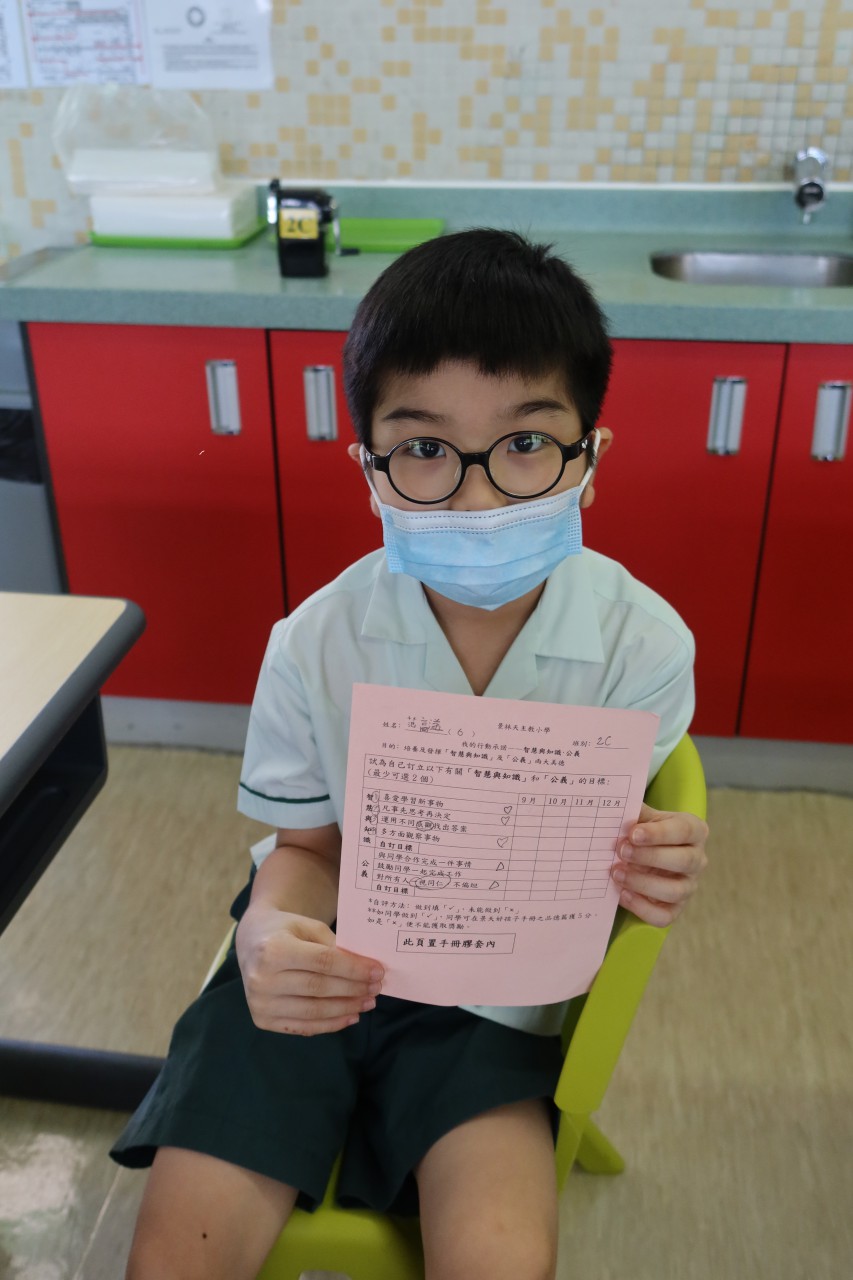 2C
景林天主教小學
姓名： (6) 班別：2C
我的行動承諾——智慧與知識·公義
目的：培養及發揮「智慧與知識」及「公義」兩大美德
試為自己訂立以下有關「智慧與知識」和「公義」的目標：
(最少可選2個)
9月 10月 11月 12月
智慧與知識
喜愛學習新事物
凡事先思考再決定 ♡
運用不同感觀找出答案 ♡
多方面觀察事物 ♡
自訂目標
公義
與同學合作完成一件事情 △
鼓勵同學一起完成工作
對所有人一視同仁，不偏袒 △
自訂目標
*自評方法：做到填「✓」，未能做到「×」
**如同學做到「✓」，同學可在景天好孩子手冊之品德篇獲5分，
如是「×」便不能獲取獎勵。
此頁置手冊膠套內